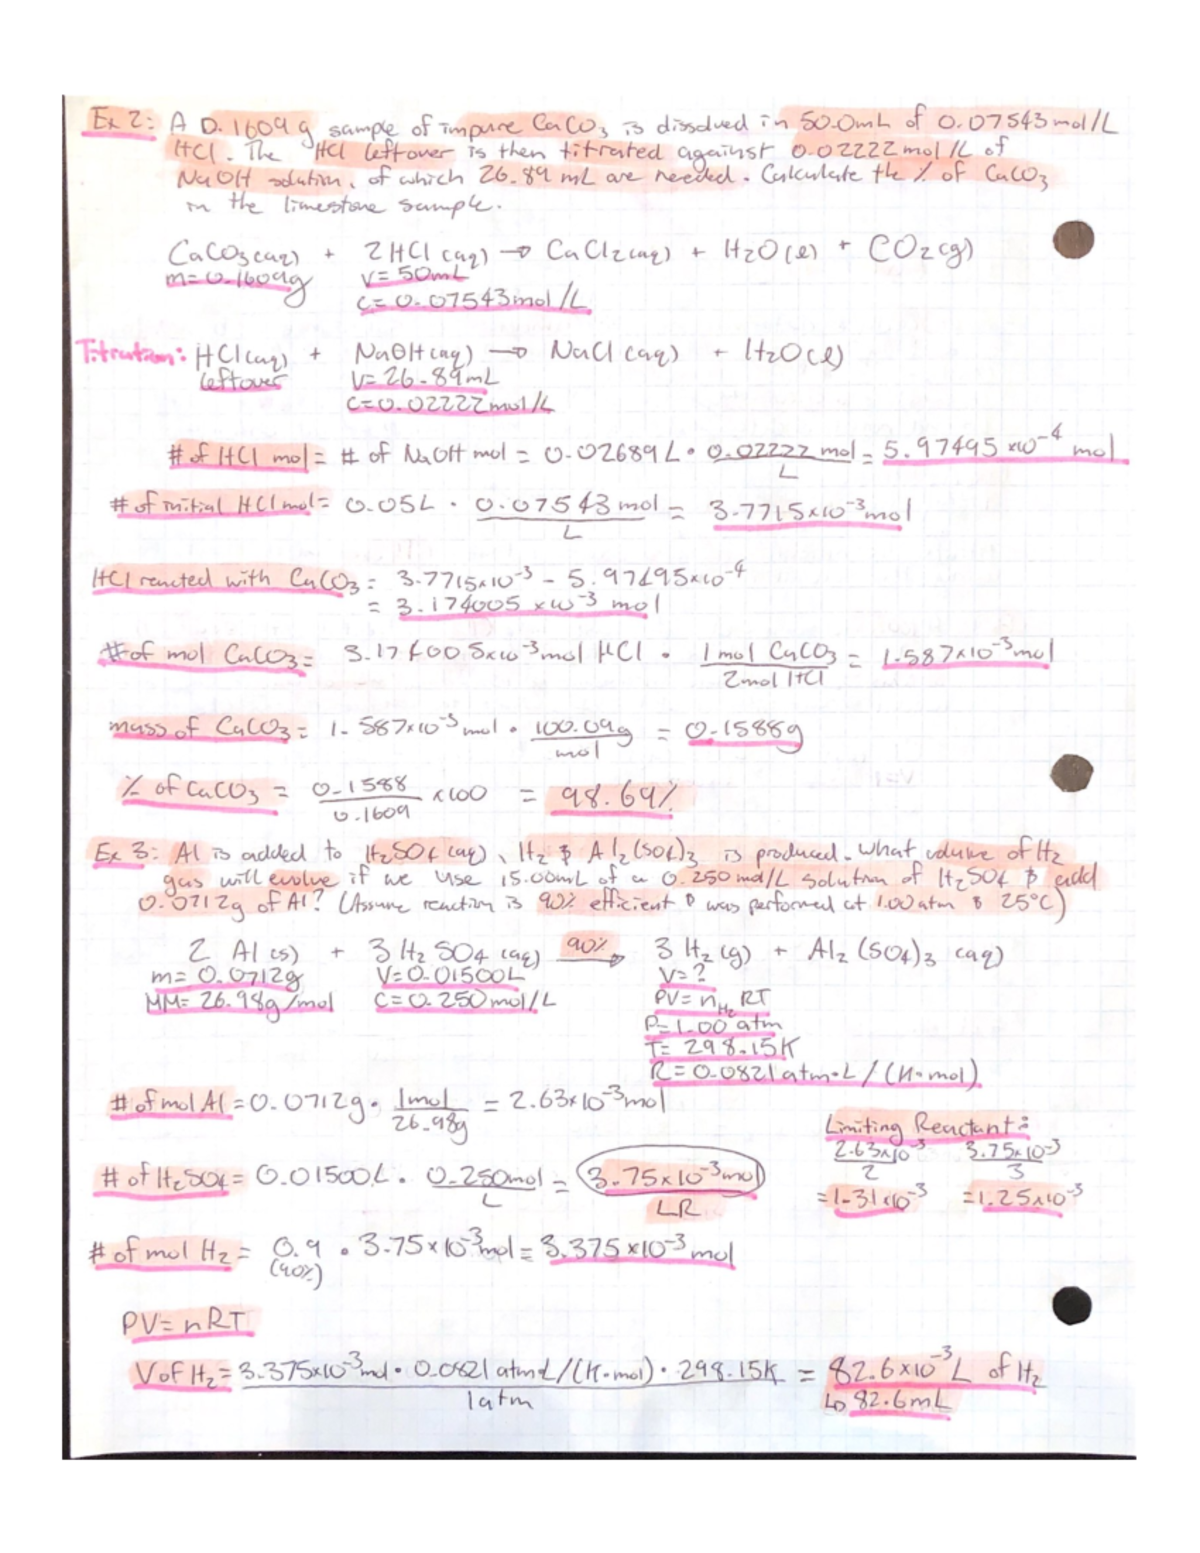 Ex 2: A 0.1609g sample of impure CaCO3 is dissolved in 50.0mL of 0.07543 mol/L
HCl. The HCl leftover is then titrated against 0.02222 mol/L of
NaOH solution, of which 26.89 mL are needed. Calculate the % of CaCO3
in the limestone sample.
CaCO3(aq) + 2HCl(aq) → CaCl2(aq) + H2O(l) + CO2(g)
m=0.1609g V=50mL
C=0.07543mol/L
Titration: HCl(aq) + NaOH(aq) → NaCl(aq) + H2O(l)
leftover V=26.89mL
C=0.02222mol/L
# of HCl mol = # of NaOH mol = 0.02689L · 0.02222 mol/L = 5.97495 x10^-4 mol
# of initial HCl mol = 0.05L · 0.07543 mol/L = 3.7715x10^-3 mol
HCl reacted with CaCO3 = 3.7715x10^-3 - 5.97495x10^-4
= 3.174005 x10^-3 mol
# of mol CaCO3 = 3.174005x10^-3 mol HCl · 1 mol CaCO3/2mol HCl = 1.587x10^-3 mol
mass of CaCO3 = 1.587x10^-3 mol · 100.09g/mol = 0.1588g
% of CaCO3 = 0.1588/0.1609 x100 = 98.69%
Ex 3: Al is added to H2SO4(aq), H2 & Al2(SO4)3 is produced. What volume of H2
gas will evolve if we use 15.00mL of a 0.250 mol/L solution of H2SO4 & add
0.0712g of Al? (Assume reaction is 90% efficient & was performed at 1.00 atm & 25°C)
2 Al(s) + 3 H2SO4(aq) 90%→ 3 H2(g) + Al2(SO4)3 (aq)
m=0.0712g V=0.01500L V=?
MM=26.98g/mol C=0.250mol/L PV=nH2RT
P=1.00 atm
T=298.15K
R=0.0821 atm·L/(K·mol)
# of mol Al = 0.0712g · 1mol/26.98g = 2.63x10^-3 mol
Limiting Reactant:
2.63x10^-3/2 3.75x10^-3/3
# of H2SO4 = 0.01500L · 0.250mol/L = 3.75x10^-3 mol
=1.31x10^-3 =1.25x10^-3
LR
# of mol H2 = 0.9 · 3.75x10^-3 mol = 3.375x10^-3 mol
(90%)
PV=nRT
V of H2 = 3.375x10^-3 mol · 0.0821 atm·L/(K·mol) · 298.15K/1atm = 82.6x10^-3 L of H2
↳ 82.6mL